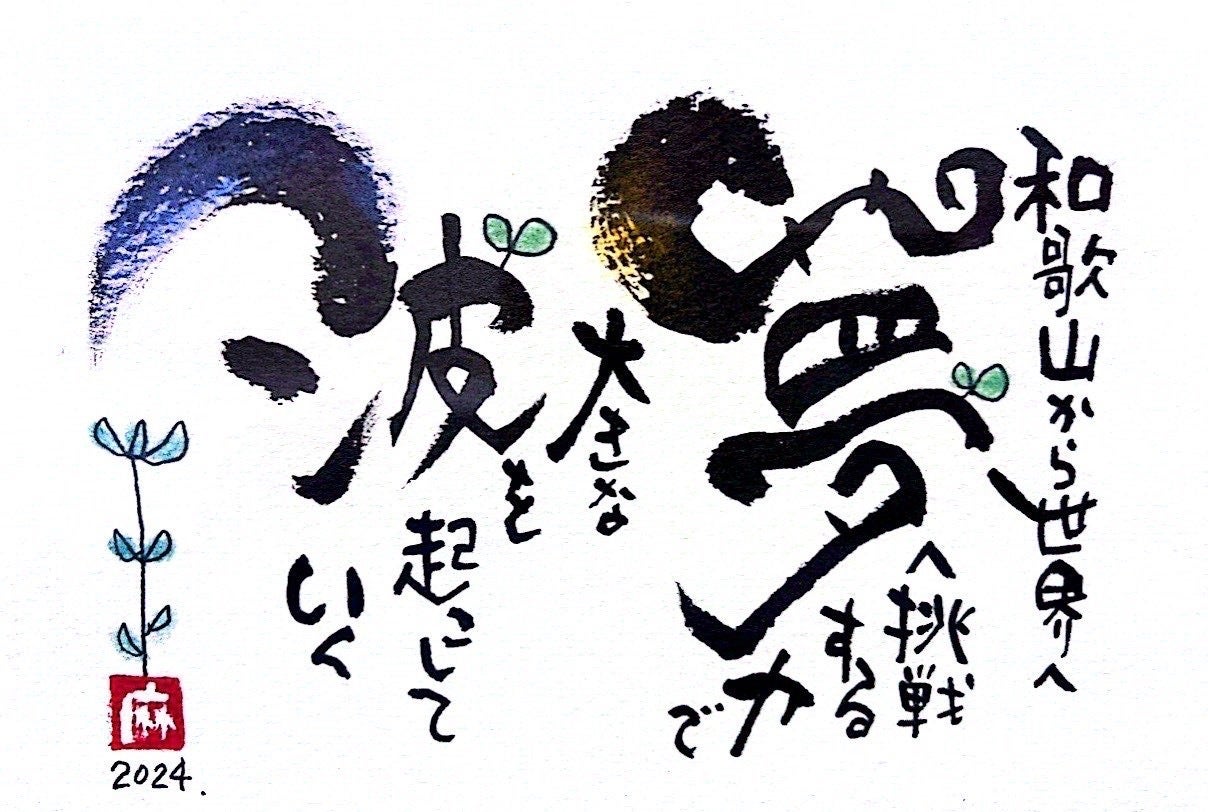 和歌山から世界へ
夢へ挑戦
する
力で
大きな
波を
起こして
いく
麻
2024.